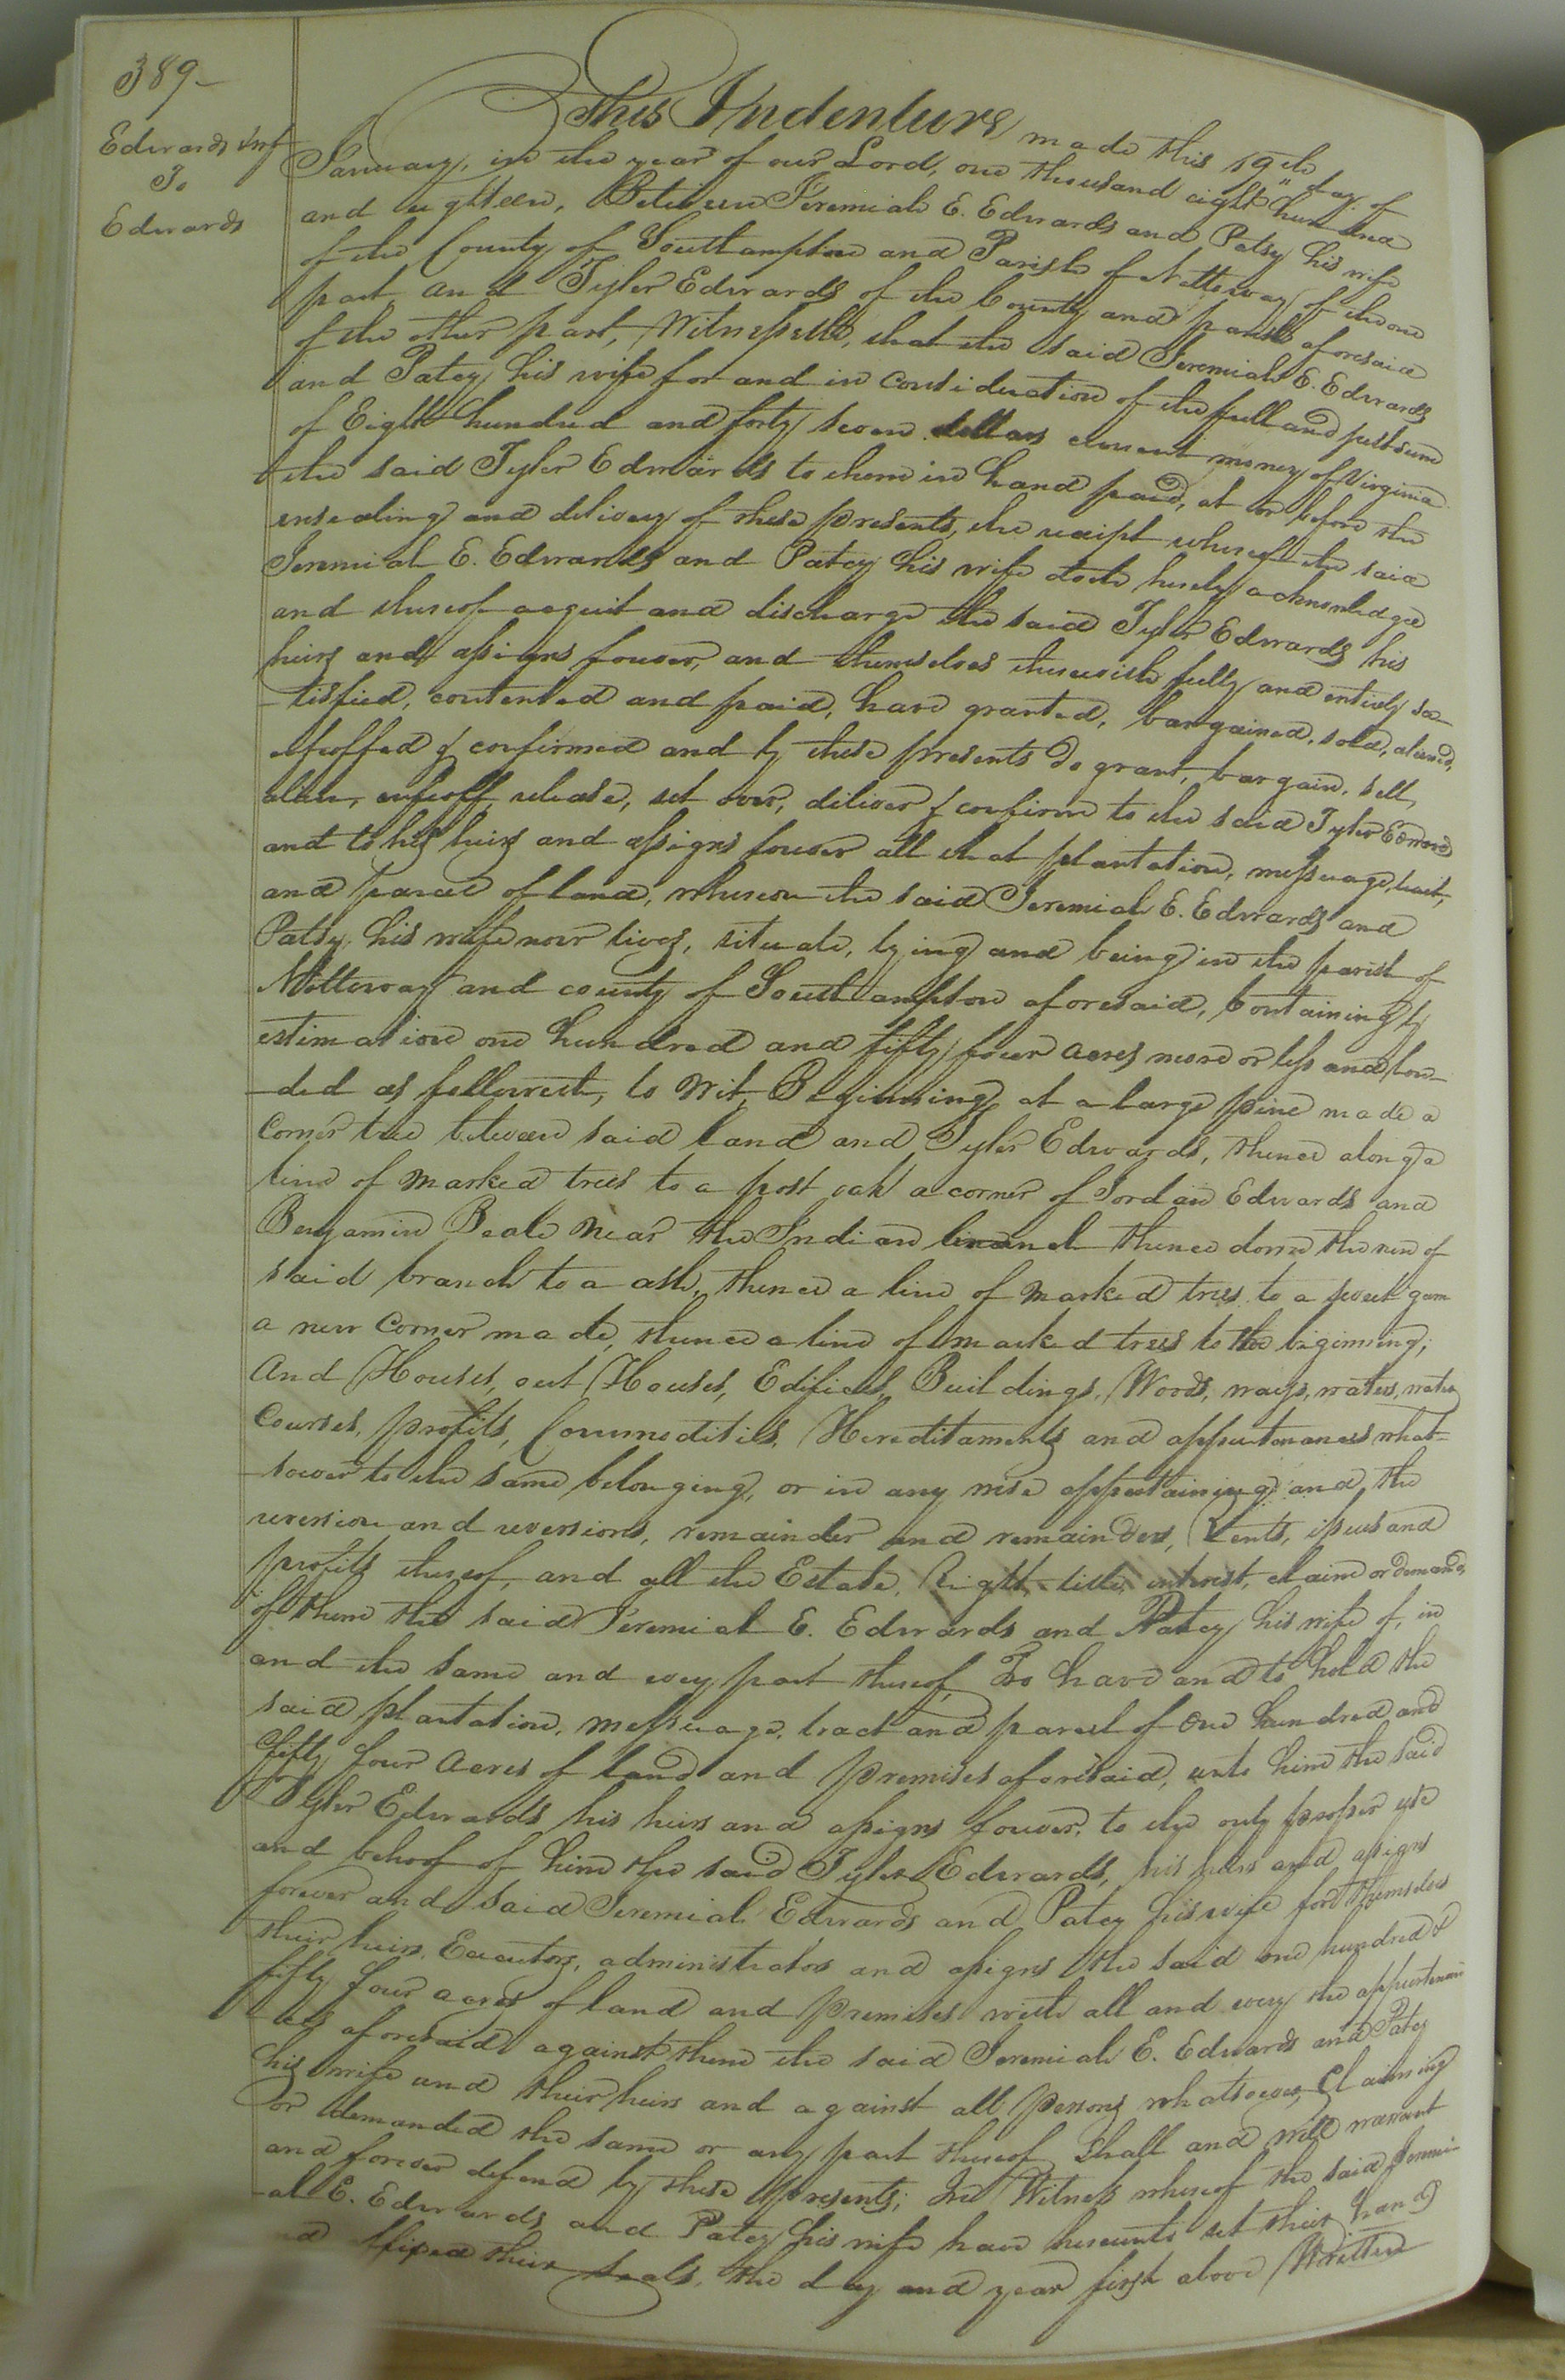 389-
Edwards & wf
To
Edwards
This Indenture made this 19th day of
January, in the year of our Lord, one thousand eight hundred
and eighteen, Between Jeremiah E. Edwards and Patsy his wife
of the County of Southampton and Parish of Nottoway of the one
part and Tyler Edwards of the County and parish aforesaid
of the other part, Witnesseth, that the said Jeremiah E. Edwards
and Patsy his wife for and in consideration of the full and just sum
of Eight hundred and forty seven dollars current money of Virginia
the said Tyler Edwards to them in hand paid, at or before the
ensealing and delivery of these presents, the receipt whereof the said
Jeremiah E. Edwards and Patsy his wife doth hereby acknowledge
and thereof acquit and discharge the said Tyler Edwards his
heirs and assigns forever, and themselves therewith fully and entirely sa-
-tisfied, contented and paid, have granted, bargained, sold, aliened,
enfeoffed & confirmed and by these presents do grant, bargain, sell,
alien, enfeoff release, set over, deliver & confirm to the said Tyler Edwards
and to his heirs and assigns forever all that plantation, messuage, tract,
and parcel of land, whereon the said Jeremiah E. Edwards and
Patsy his wife now lives, situate, lying and being in the parish of
Nottoway and county of Southampton aforesaid, Containing by
estimation one hundred and fifty four acres more or less and boun-
-ded as followeth, to wit, Beginning at a large pine made a
corner tree between said land and Tyler Edwards, thence along a
line of marked trees to a post oak a corner of Jordan Edwards and
Benjamin Beale near the Indian branch thence down the run of
said branch to a ash, thence a line of marked trees to a sweet gum
a new corner made, thence a line of marked trees to the beginning;
And Houses, out Houses, Edifices, Buildings, Woods, ways, waters, water
Courses, profits, Commodities, Hereditaments and appurtenances what-
-soever to the same belonging, or in any wise appertaining and the
reversion and reversions, remainder and remainders, Rents, issues and
profits thereof, and all the Estate, Right, title, interest, claim or demand,
of them the said Jeremiah E. Edwards and Patsy his wife of, in
and the same and every part thereof, To have and to hold the
said plantation, messuage, tract and parcel of One hundred and
fifty four acres of land and premises aforesaid, unto him the said
Tyler Edwards his heirs and assigns forever, to the only proper use
and behoof of him the said Tyler Edwards, his heirs and assigns
forever and said Jeremiah Edwards and Patsy his wife for themselves
their heirs, Executors, administrators and assigns the said one hundred &
fifty four acres of land and premises with all and every the appurtenan
-ces aforesaid against them the said Jeremiah E. Edwards and Patsy
his wife and their heirs and against all persons whatsoever, Claiming
or demanded the same or any part thereof shall and will warrant
and forever defend by these presents; In Witness whereof the said Jeremi-
-ah E. Edwards and Patsy his wife have hereunto set their hand
affixed their seals, the day and year first above Written